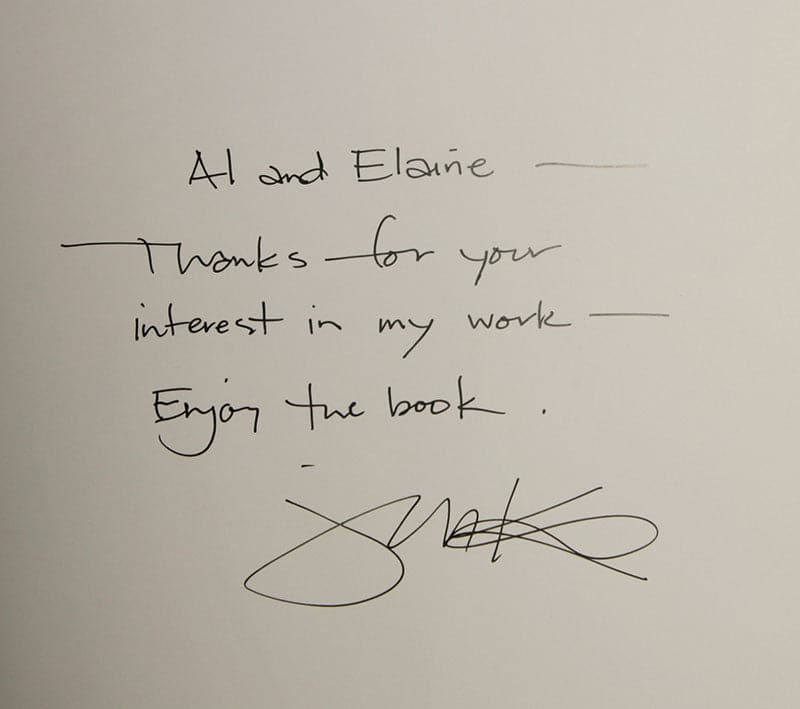 Al and Elaine —
Thanks for your
interest in my work —
Enjoy the book.